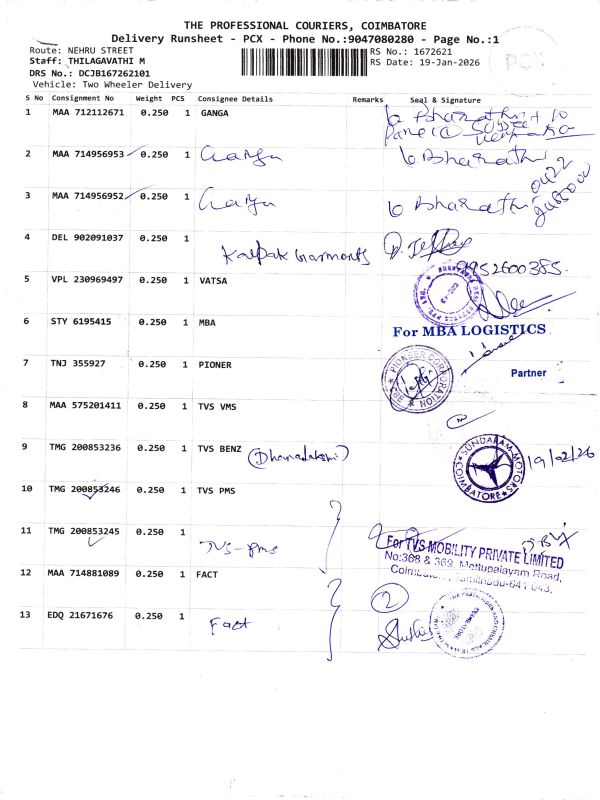 THE PROFESSIONAL COURIERS, COIMBATORE
Delivery Runsheet - PCX - Phone No.:9047080280 - Page No.:1
Route: NEHRU STREET
Staff: THILAGAVATHI M
DRS No.: DCJB167262101
Vehicle: Two Wheeler Delivery
RS No.: 1672621
RS Date: 19-Jan-2026
PCX
S No Consignment No Weight PCS Consignee Details Remarks Seal & Signature
1 MAA 712112671 0.250 1 GANGA
2 MAA 714956953 0.250 1 Ganga Bharathi
3 MAA 714956952 0.250 1 Ganga Bharathi
4 DEL 902091037 0.250 1 Kalpak Garments
9952600385
5 VPL 230969497 0.250 1 VATSA
6 STY 6195415 0.250 1 MBA
For MBA LOGISTICS
Partner
7 TNJ 355927 0.250 1 PIONER
PIONEER CORPORATION
8 MAA 575201411 0.250 1 TVS VMS
9 TMG 200853236 0.250 1 TVS BENZ (Dhanalakshmi)
SUNDARAM MOTORS
COIMBATORE
19/02/26
10 TMG 200853246 0.250 1 TVS PMS
11 TMG 200853245 0.250 1 TVS-pms
For TVS MOBILITY PRIVATE LIMITED
No:368 & 369, Mettupalayam Road,
12 MAA 714881089 0.250 1 FACT
2
13 EDQ 21671676 0.250 1 Fact